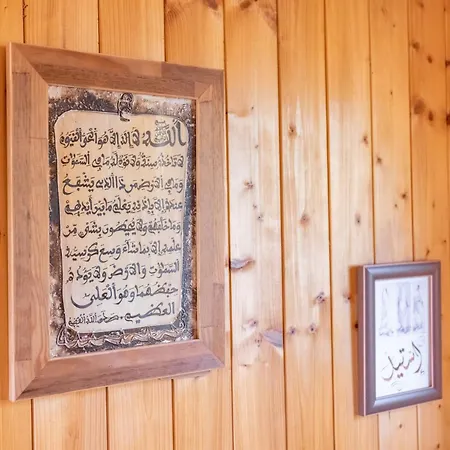 الله لا إله إلا هو الحي القيوم
لا تاخذه سنة ولا نوم له ما في السموات
وما في الارض من ذا الذي يشفع
عنده إلا بإذنه يعلم ما بين أيديهم
وما خلفهم ولا يحيطون بشيء من
علمه إلا بما شاء وسع كرسيه
السموات والارض ولا يؤده
حفظهما وهو العلي
العظيم. صدق الله العظيم
إستيل